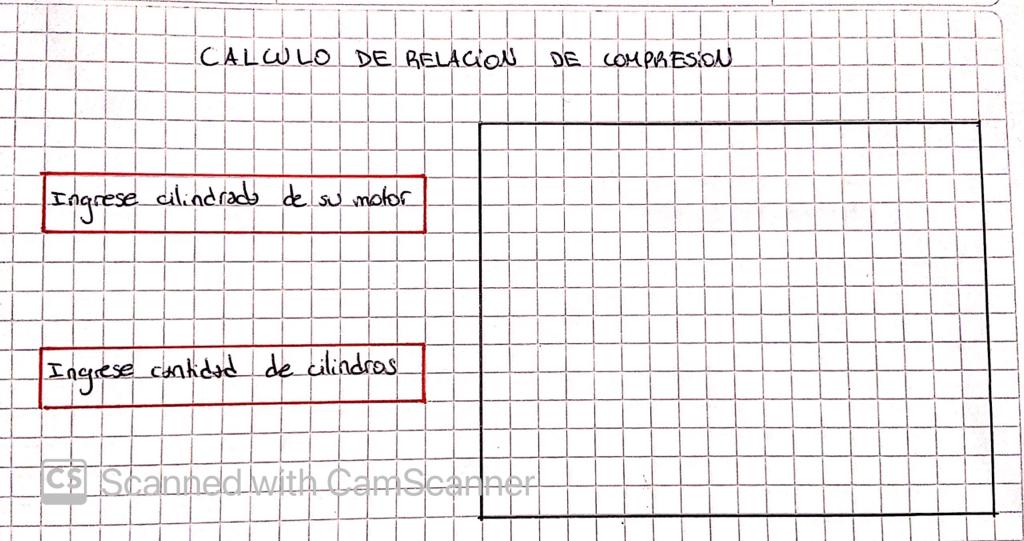 CALCULO DE RELACION DE COMPRESION
Ingrese cilindrada de su motor
Ingrese cantidad de cilindros
CS Scanned with CamScanner